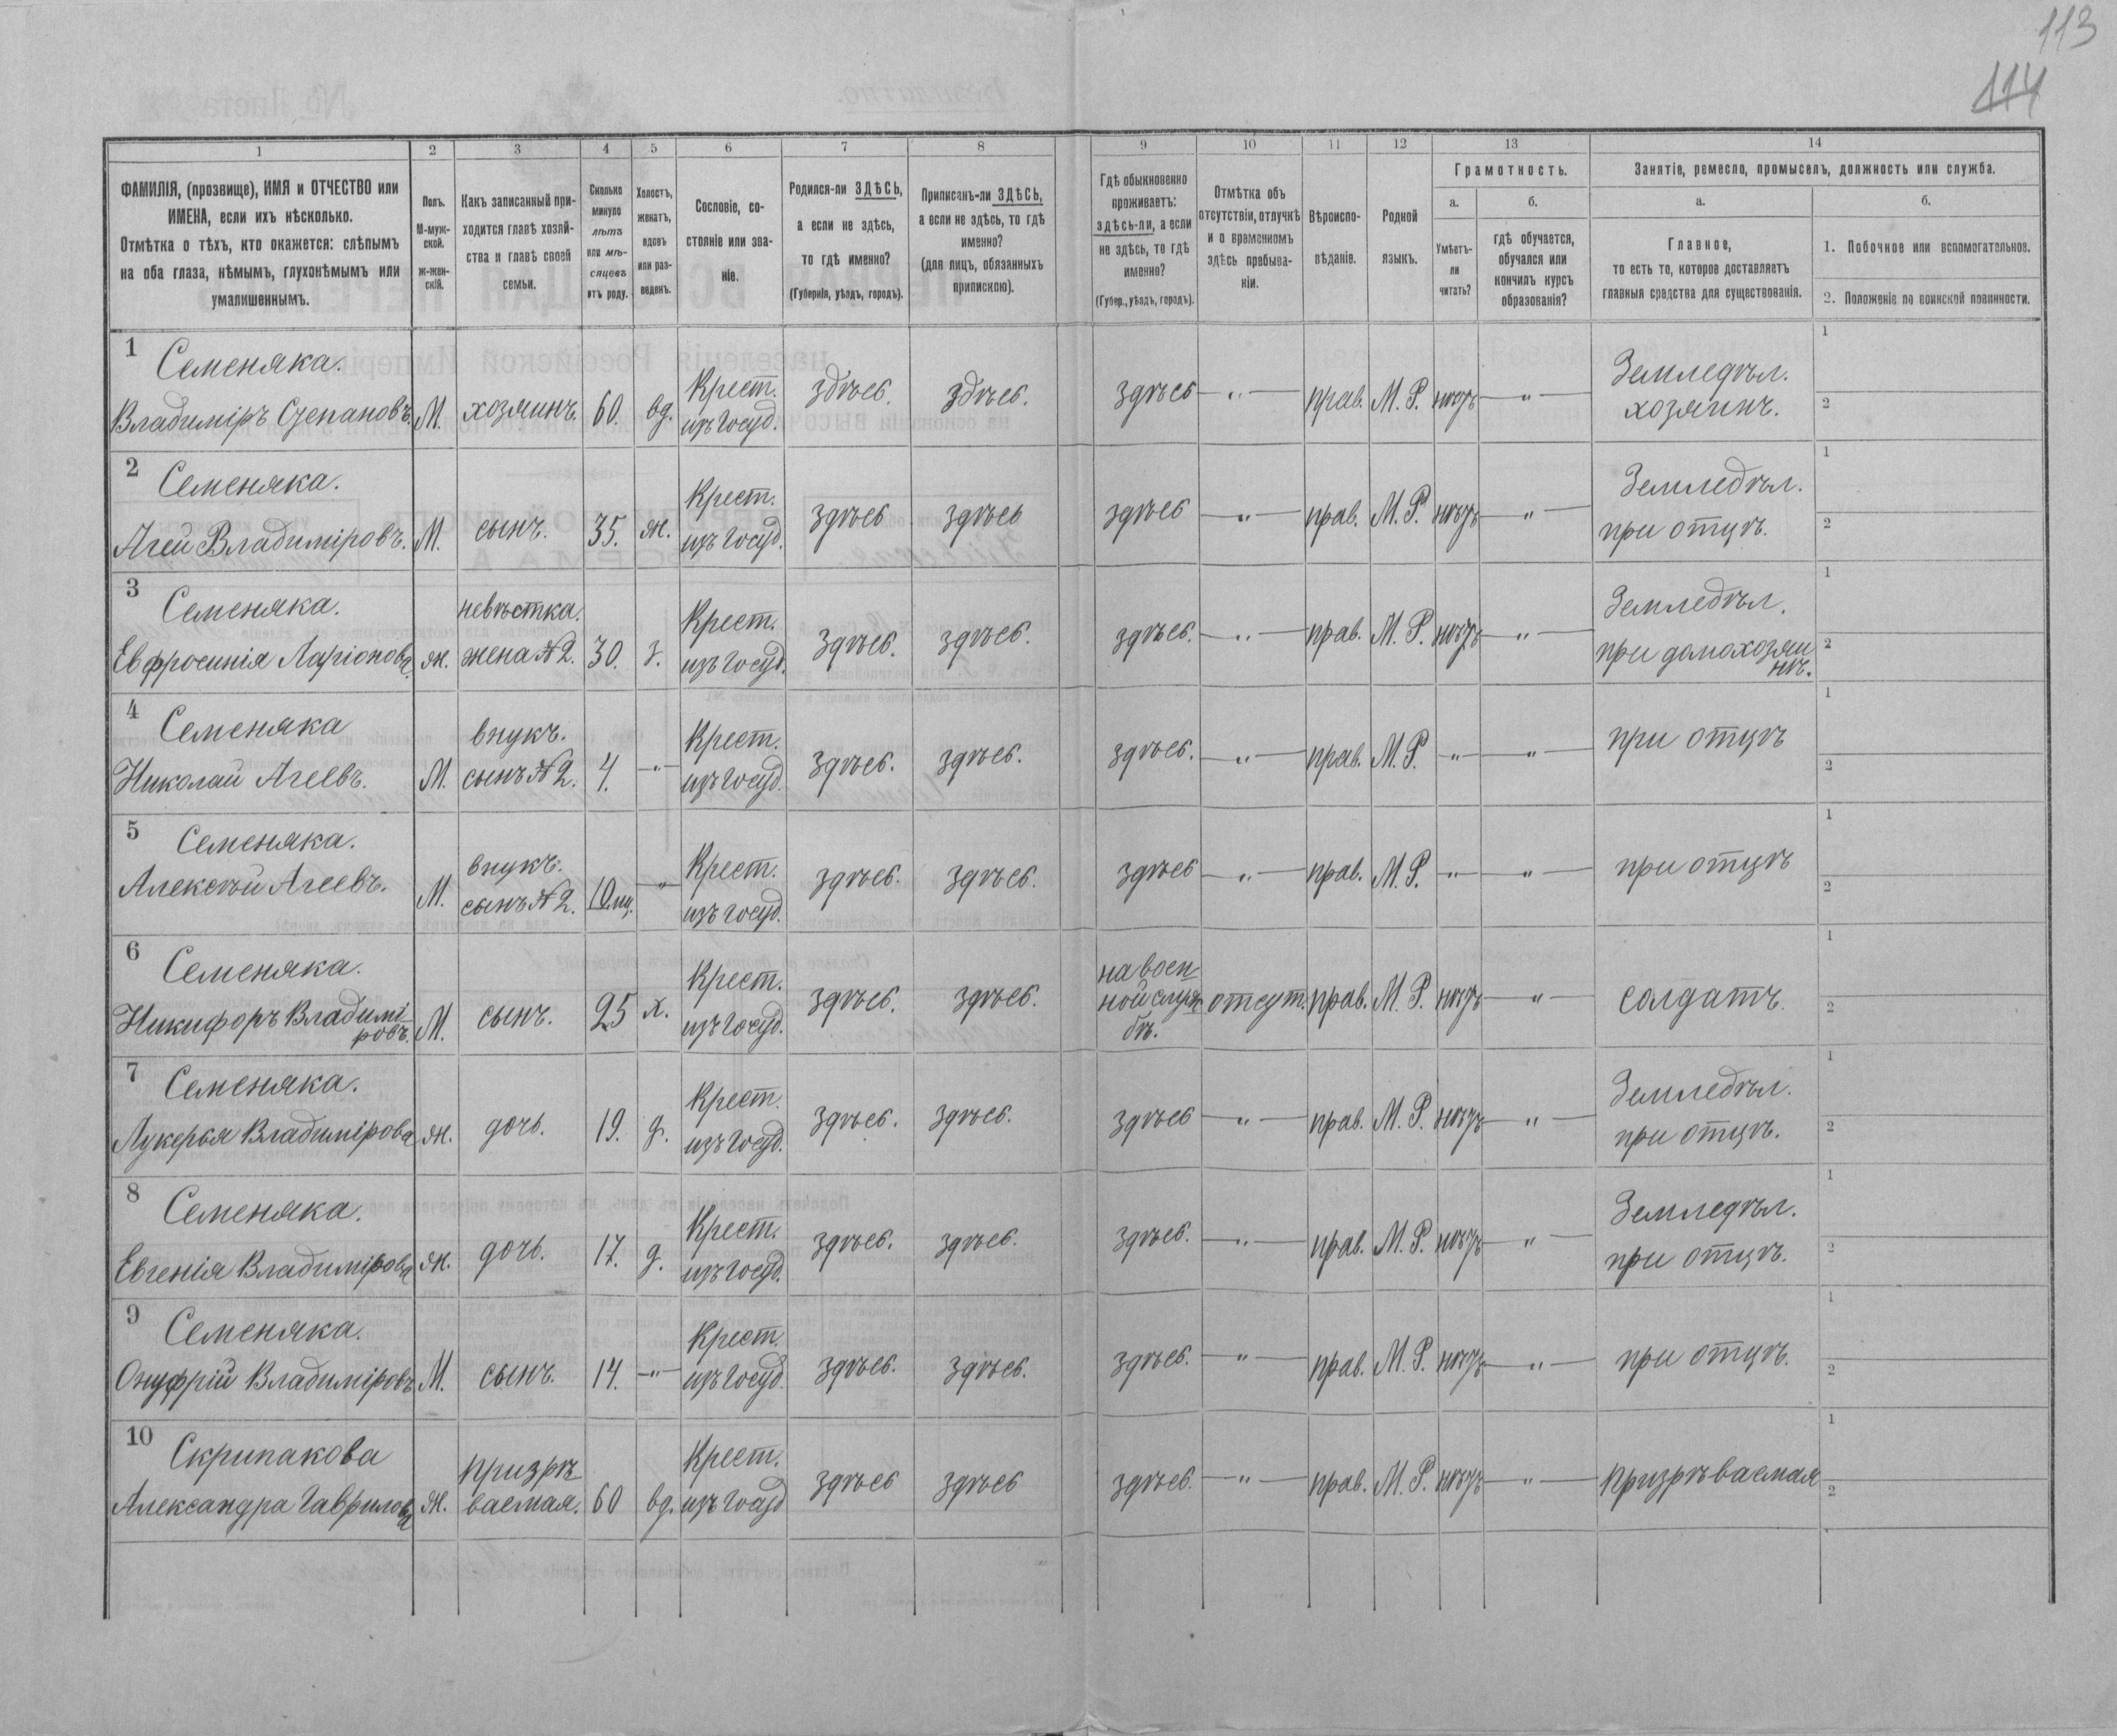 113
114
1 2 3 4 5 6 7 8 9 10 11 12 13 14
ФАМИЛІЯ, (прозвище), ИМЯ и ОТЧЕСТВО или ИМЕНА, если ихъ нѣсколько.
Отмѣтка о тѣхъ, кто окажется: слѣпымъ на оба глаза, нѣмымъ, глухонѣмымъ или умалишеннымъ.
Полъ. М-мужской. ж-женскій.
Какъ записанный приходится главѣ хозяйства и главѣ своей семьи.
Сколько минуло лѣтъ или мѣсяцевъ отъ роду.
Холостъ, женатъ, вдовъ или разведенъ.
Сословіе, состояніе или званіе.
Родился-ли ЗДѢСЬ, а если не здѣсь, то гдѣ именно? (Губернія, уѣздъ, городъ).
Приписанъ-ли ЗДѢСЬ, а если не здѣсь, то гдѣ именно? (для лицъ, обязанныхъ припискою).
Гдѣ обыкновенно проживаетъ: здѣсь-ли, а если не здѣсь, то гдѣ именно? (Губер., уѣздъ, городъ).
Отмѣтка объ отсутствіи, отлучкѣ и о временномъ здѣсь пребываніи.
Вѣроисповѣданіе.
Родной языкъ.
Грамотность.
а. Умѣетъ-ли читать?
б. гдѣ обучается, обучался или кончилъ курсъ образованія?
Занятіе, ремесло, промыселъ, должность или служба.
а. Главное, то есть то, которое доставляетъ главныя средства для существованія.
б. 1. Побочное или вспомогательное.
2. Положеніе по воинской повинности.
1 Семеняка. Крест. Земледѣл. 1
Владиміръ Степановъ. М. хозяинъ. 60. вд. изъ Госуд. здѣсь. здѣсь. здѣсь — " — прав. М. Р. нѣтъ — " — хозяинъ. 2
2 Семеняка. Крест. Земледѣл. 1
Агей Владиміровъ. М. сынъ. 35. ж. изъ Госуд. здѣсь здѣсь здѣсь — " — прав. М. Р. нѣтъ — " — при отцѣ. 2
3 Семеняка. невѣстка. Крест. Земледѣл. 1
Евфросинія Ларіонова. ж. жена №2. 30. з. изъ Госуд. здѣсь. здѣсь. здѣсь. — " — прав. М. Р. нѣтъ — " — при домохозяинѣ. 2
4 Семеняка внукъ. Крест. 1
Николай Агеевъ. М. сынъ №2. 4. — " — изъ Госуд. здѣсь. здѣсь. здѣсь. — " — прав. М. Р. — " — " — при отцѣ 2
5 Семеняка. внукъ. Крест. 1
Алексѣй Агеевъ. М. сынъ №2. 10 мц. " изъ Госуд. здѣсь. здѣсь. здѣсь — " — прав. М. Р. — " — " — при отцѣ 2
6 Семеняка. Крест. на воен- 1
Никифоръ Владиміровъ. М. сынъ. 25 х. изъ Госуд. здѣсь. здѣсь. ной службѣ. отсут. прав. М. Р. нѣтъ — " — солдатъ. 2
7 Семеняка. Крест. Земледѣл. 1
Лукерья Владимірова ж. дочь. 19. д. изъ Госуд. здѣсь. здѣсь. здѣсь — " — прав. М. Р. нѣтъ — " — при отцѣ. 2
8 Семеняка. Крест. Земледѣл. 1
Евгенія Владимірова ж. дочь. 17. д. изъ Госуд. здѣсь. здѣсь. здѣсь. — " — прав. М. Р. нѣтъ — " — при отцѣ. 2
9 Семеняка. Крест. 1
Онуфрій Владиміровъ М. сынъ. 14. — " — изъ Госуд. здѣсь. здѣсь. здѣсь. — " — прав. М. Р. нѣтъ — " — при отцѣ. 2
10 Скрипакова призрѣ- Крест. 1
Александра Гаврилова ж. ваемая. 60 вд. изъ Госуд здѣсь здѣсь здѣсь. — " — прав. М. Р. нѣтъ — " — призрѣваемая 2